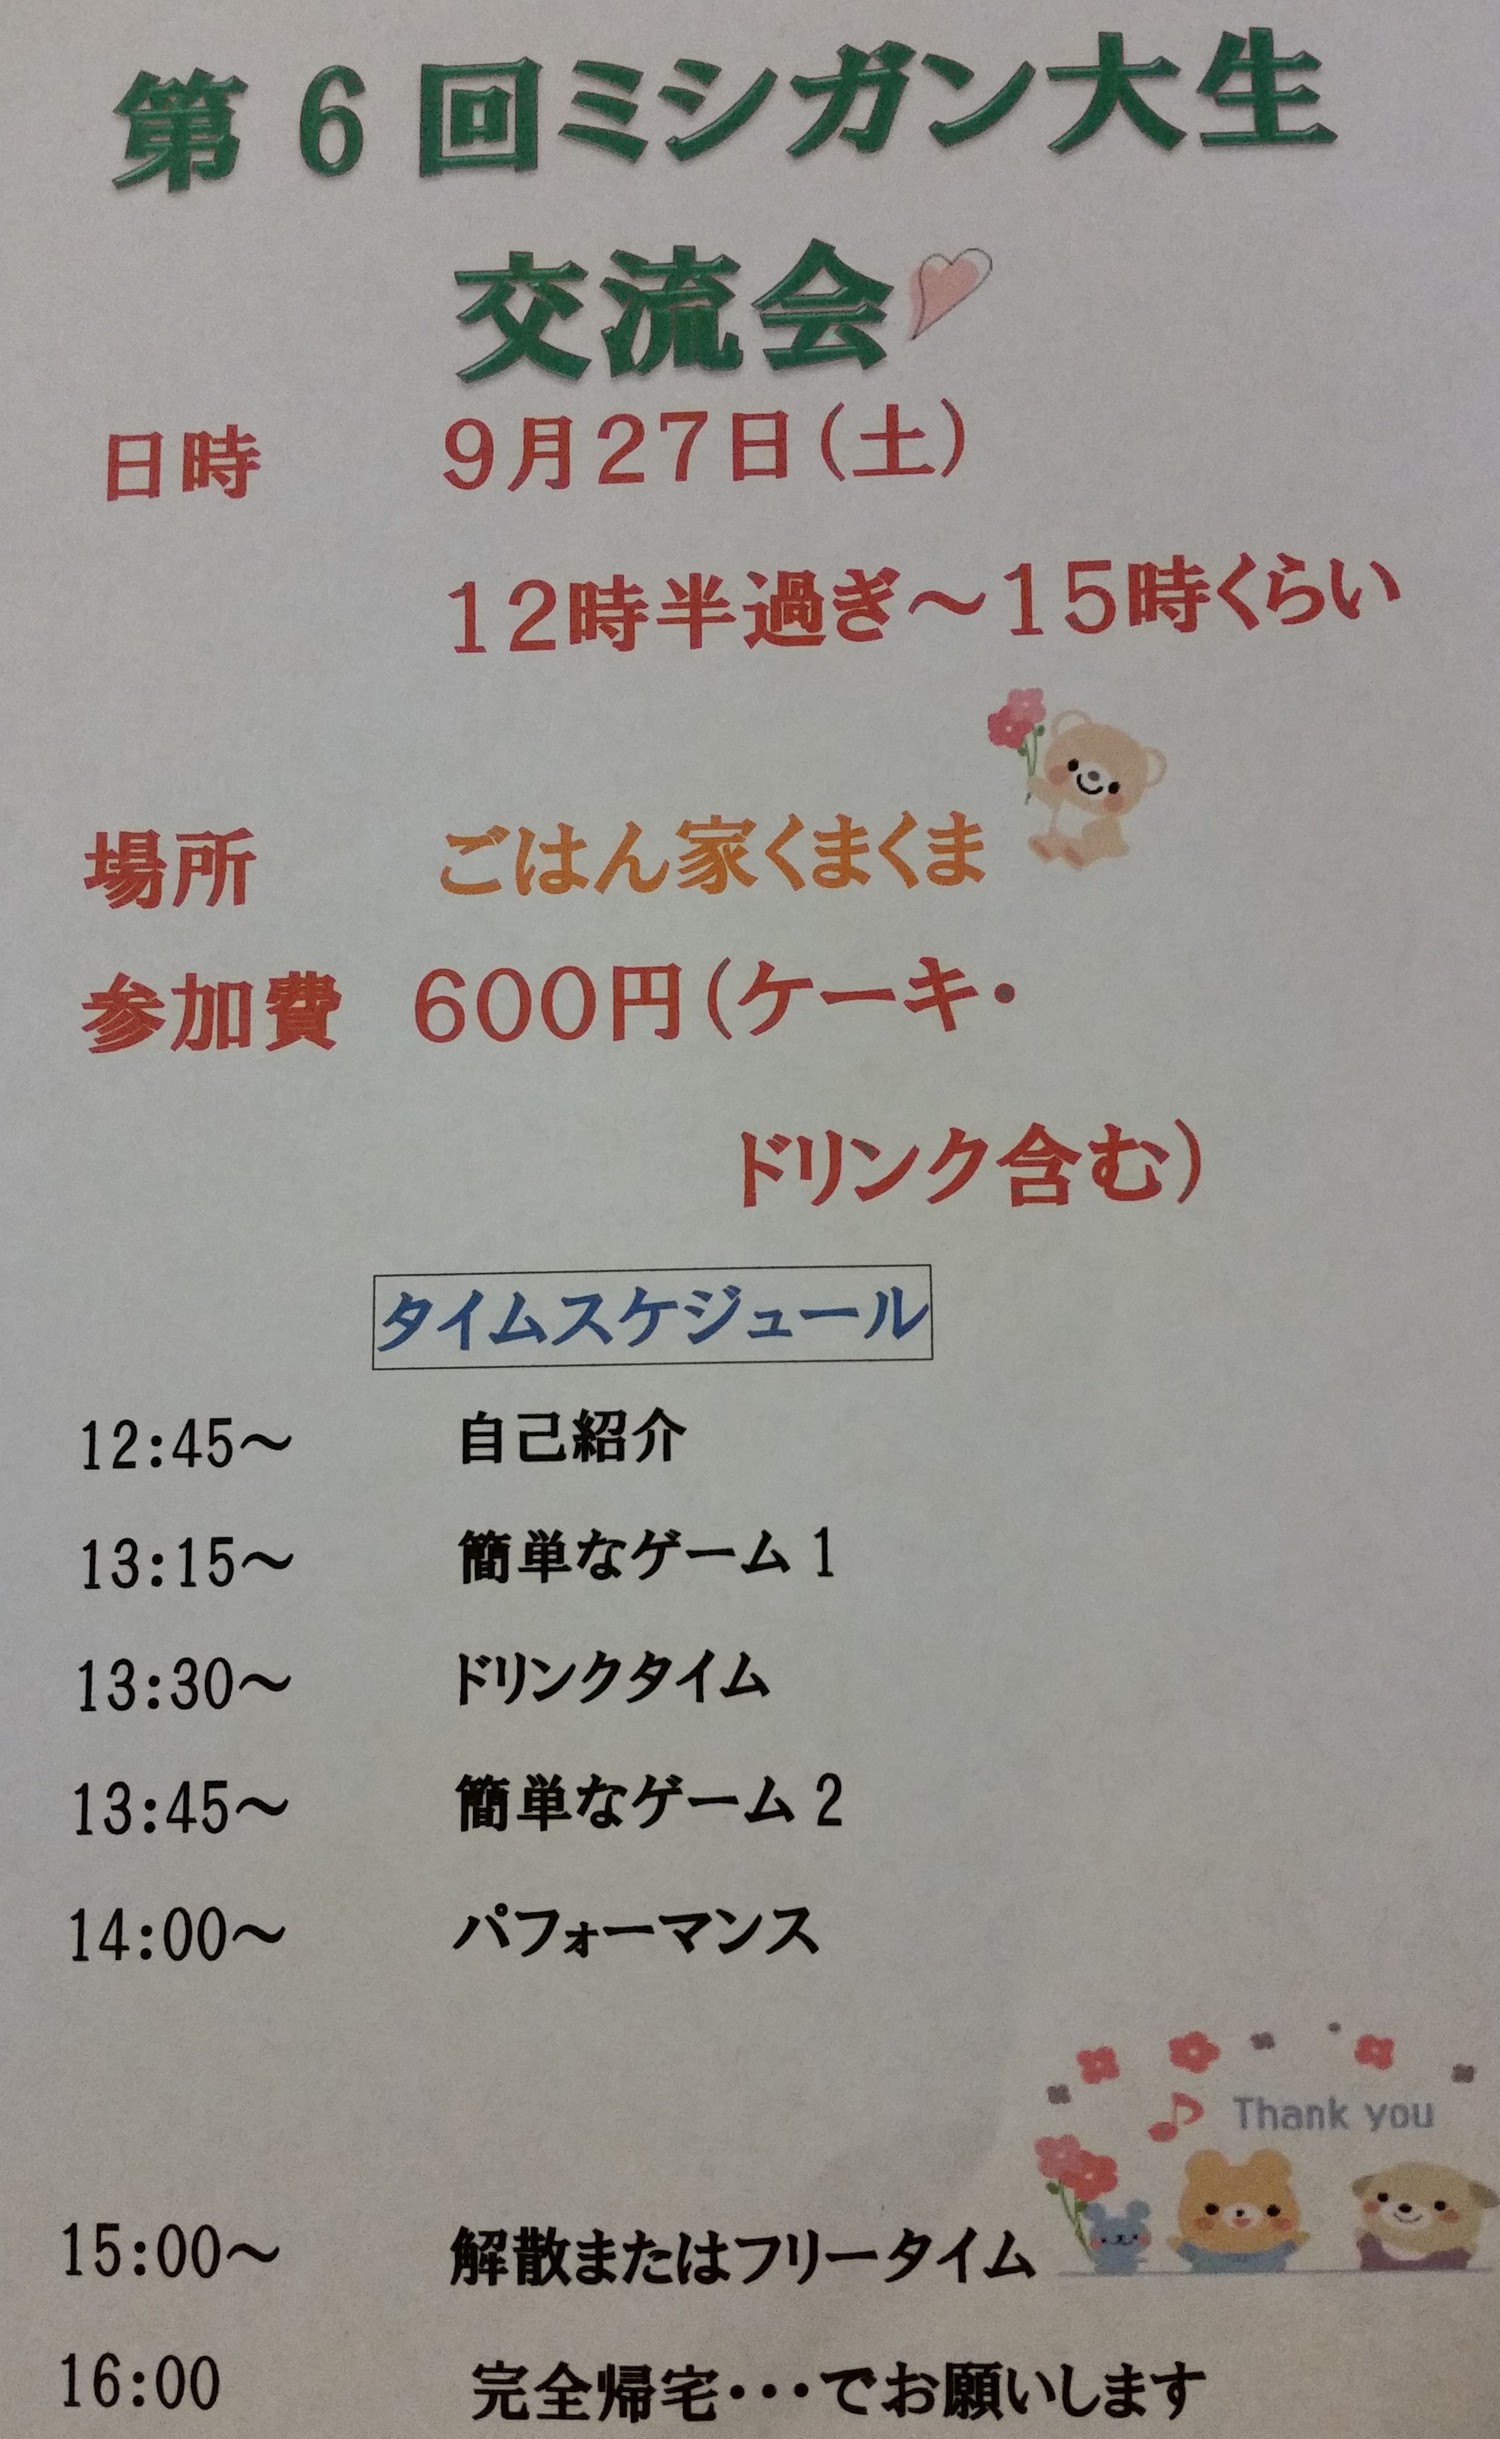 第６回ミシガン大生
交流会
日時 9月27日(土)
12時半過ぎ～15時くらい
場所 ごはん家くまくま
参加費 600円(ケーキ・
ドリンク含む)
タイムスケジュール
12:45～ 自己紹介
13:15～ 簡単なゲーム1
13:30～ ドリンクタイム
13:45～ 簡単なゲーム2
14:00～ パフォーマンス
Thank you
15:00～ 解散またはフリータイム
16:00 完全帰宅・・・でお願いします